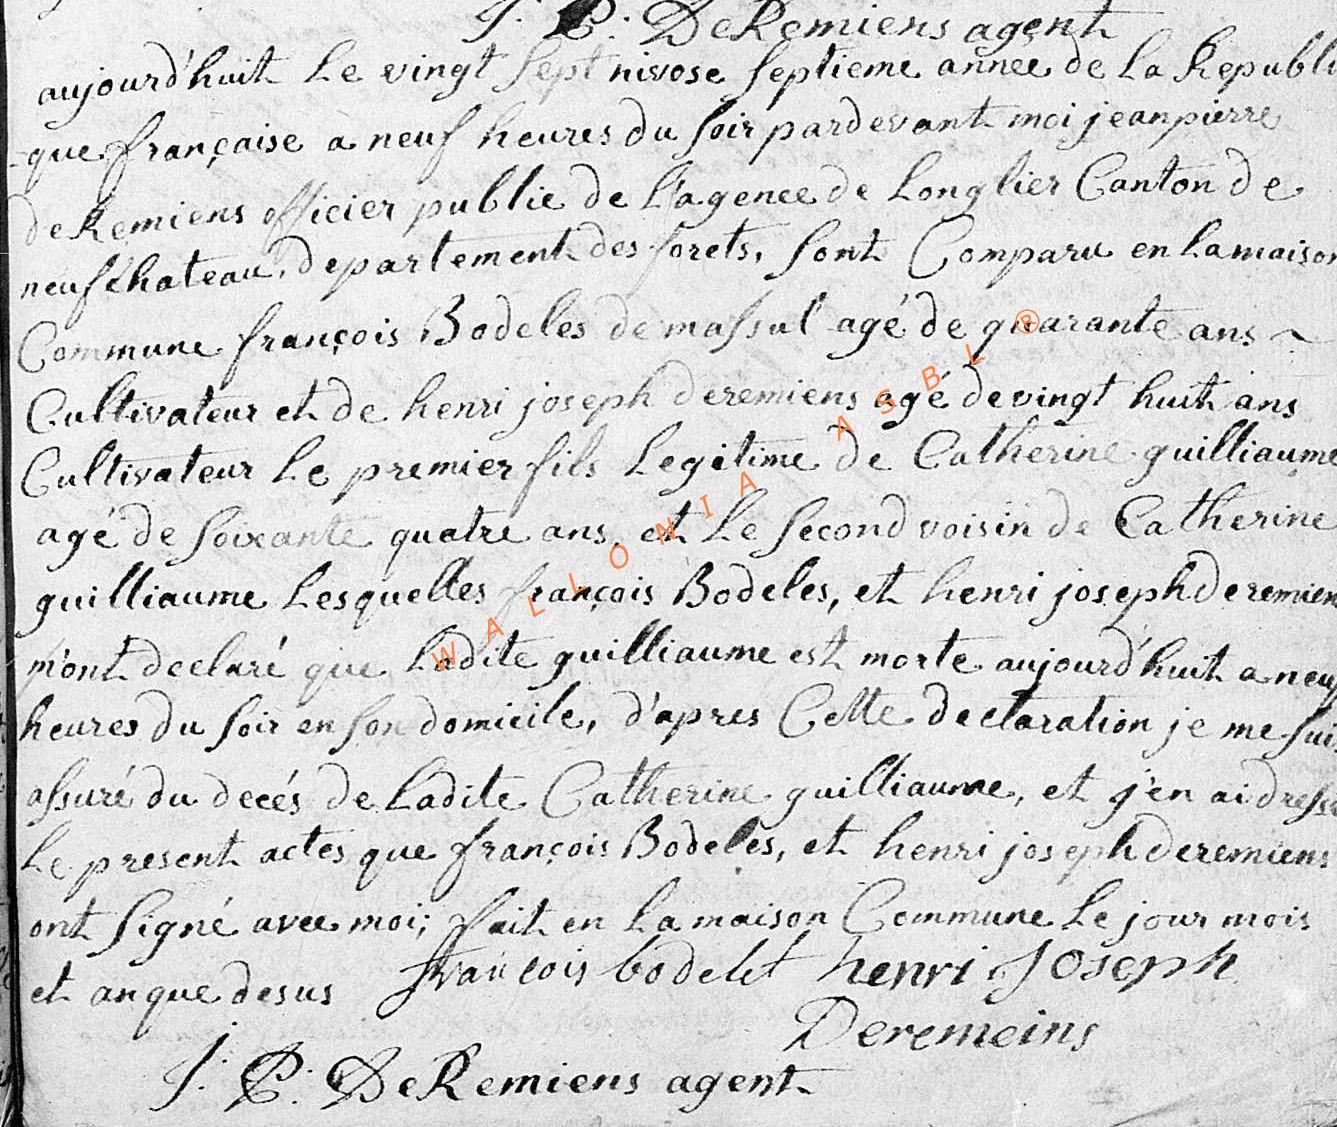 J. P. DeRemiens agent
aujourd'huit Le vingt sept nivose septieme année de La Republi
-que française a neuf heures du soir pardevant moi jeanpierre
deRemiens officier public de L'agence de Longlier Canton de
neufchateau, departement des forets, sont Comparu en Lamaison
Commune françois Bodeles de massul agé de quarante ans ~
Cultivateur et de henri joseph deremiens agé devingt huit ans
Cultivateur Le premier fils Legitime de Catherine guilliaume
agé de soixante quatre ans, et Le second voisin de Catherine
guilliaume Lesquelles françois Bodeles, et henri joseph deremien
m'ont declaré que Ladite guilliaume est morte aujourd'huit a neuf
heures du soir en son domicile, d'apres Cette declaration je me sui
assuré du decés de Ladite Catherine guilliaume, et j'en ai dressé
Le present actes que françois Bodeles, et henri joseph deremiens
ont signé avec moi; fait en La maison Commune Le jour mois
et anque desus françois bodelet henri Joseph
Deremeins
J. P. DeRemiens agent
WALLONIA ASBL ®